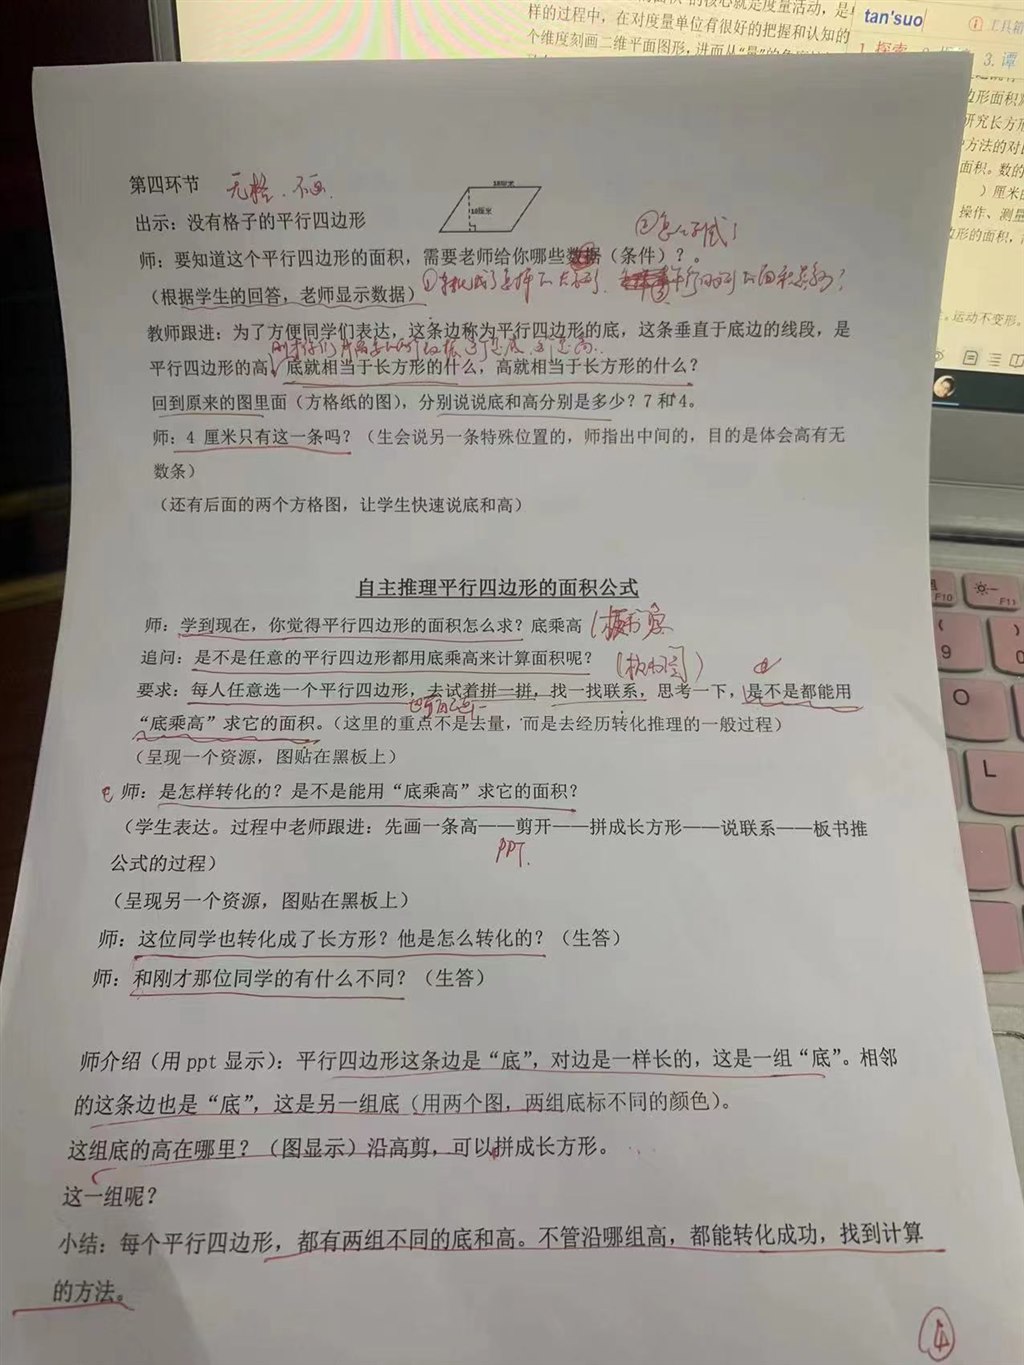 的核心就是度量活动，是
样的过程中，在对度量单位有很好的把握和认知的
个维度刻画二维平面图形，进而从“量”的角度
tan'suo
工具箱
1.探索
3.谭
边形面积
研究长方形
方法的对
面积。数的
）厘米
操作、测量
边形的面积，
运动不变形。
第四环节 无格、不画
18厘米
10厘米
出示：没有格子的平行四边形
师：要知道这个平行四边形的面积，需要老师给你哪些数据（条件）？。
（根据学生的回答，老师显示数据）
教师跟进：为了方便同学们表达，这条边称为平行四边形的底，这条垂直于底边的线段，是
平行四边形的高，底就相当于长方形的什么，高就相当于长方形的什么？
回到原来的图里面（方格纸的图），分别说说底和高分别是多少？7 和 4。
师：4 厘米只有这一条吗？（生会说另一条特殊位置的，师指出中间的，目的是体会高有无
数条）
（还有后面的两个方格图，让学生快速说底和高）
自主推理平行四边形的面积公式
师：学到现在，你觉得平行四边形的面积怎么求？底乘高
追问：是不是任意的平行四边形都用底乘高来计算面积呢？
要求：每人任意选一个平行四边形，去试着拼一拼，找一找联系，思考一下，是不是都能用
“底乘高”求它的面积。（这里的重点不是去量，而是去经历转化推理的一般过程）
（呈现一个资源，图贴在黑板上）
师：是怎样转化的？是不是能用“底乘高”求它的面积？
（学生表达。过程中老师跟进：先画一条高——剪开——拼成长方形——说联系——板书推
PPT.
公式的过程）
（呈现另一个资源，图贴在黑板上）
师：这位同学也转化成了长方形？他是怎么转化的？（生答）
师：和刚才那位同学的有什么不同？（生答）
师介绍（用 ppt 显示）：平行四边形这条边是“底”，对边是一样长的，这是一组“底”。相邻
的这条边也是“底”，这是另一组底（用两个图，两组底标不同的颜色）。
这组底的高在哪里？（图显示）沿高剪，可以拼成长方形。
这一组呢？
小结：每个平行四边形，都有两组不同的底和高。不管沿哪组高，都能转化成功，找到计算
的方法。
4
F10
F11
9
O
L